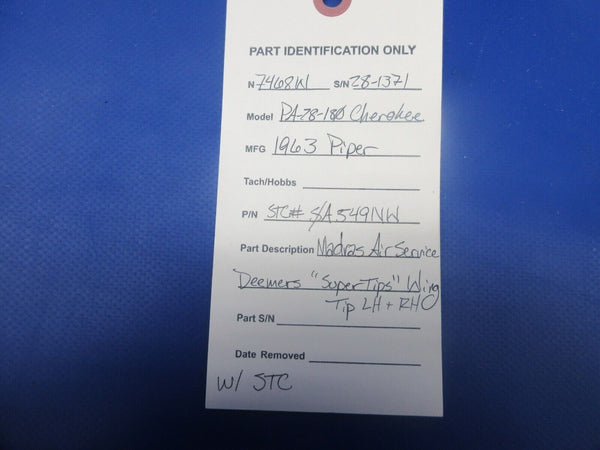 PART IDENTIFICATION ONLY
N 7468W S/N 28-1371
Model PA-28-180 Cherokee
MFG 1963 Piper
Tach/Hobbs
P/N STC# SA549NW
Part Description Madras Air Service
Deemers "SuperTips" Wing
Tip LH + RH
Part S/N
Date Removed
W/ STC